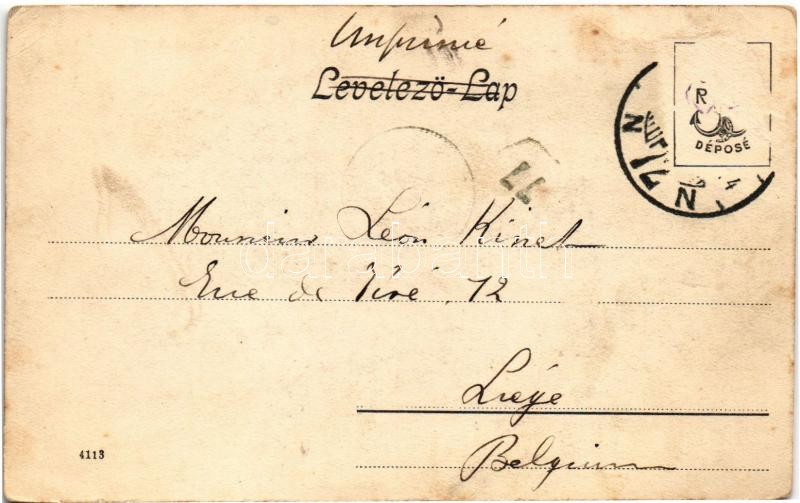 Imprimé
Levelező-Lap
R
DÉPOSÉ
77
Monsieur Léon Kinet
Rue de Tiré, 12
Liége
Belgium
4113
darabanth